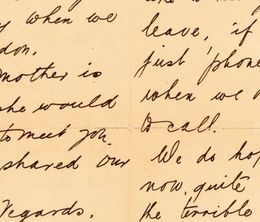 when we
don.
mother is
she would
to meet you.
shared our
Regards.
leave, if
just 'phone
when we
to call.
We do ho
now, quite
the terrible